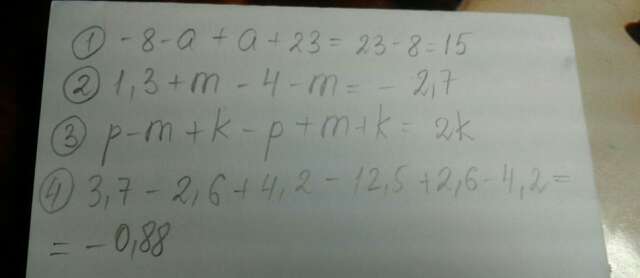 ① -8-a+a+23=23-8=15
② 1,3+m-4-m=-2,7
③ p-m+k-p+m+k=2k
④ 3,7-2,6+4,2-12,5+2,6-4,2=
=-0,88